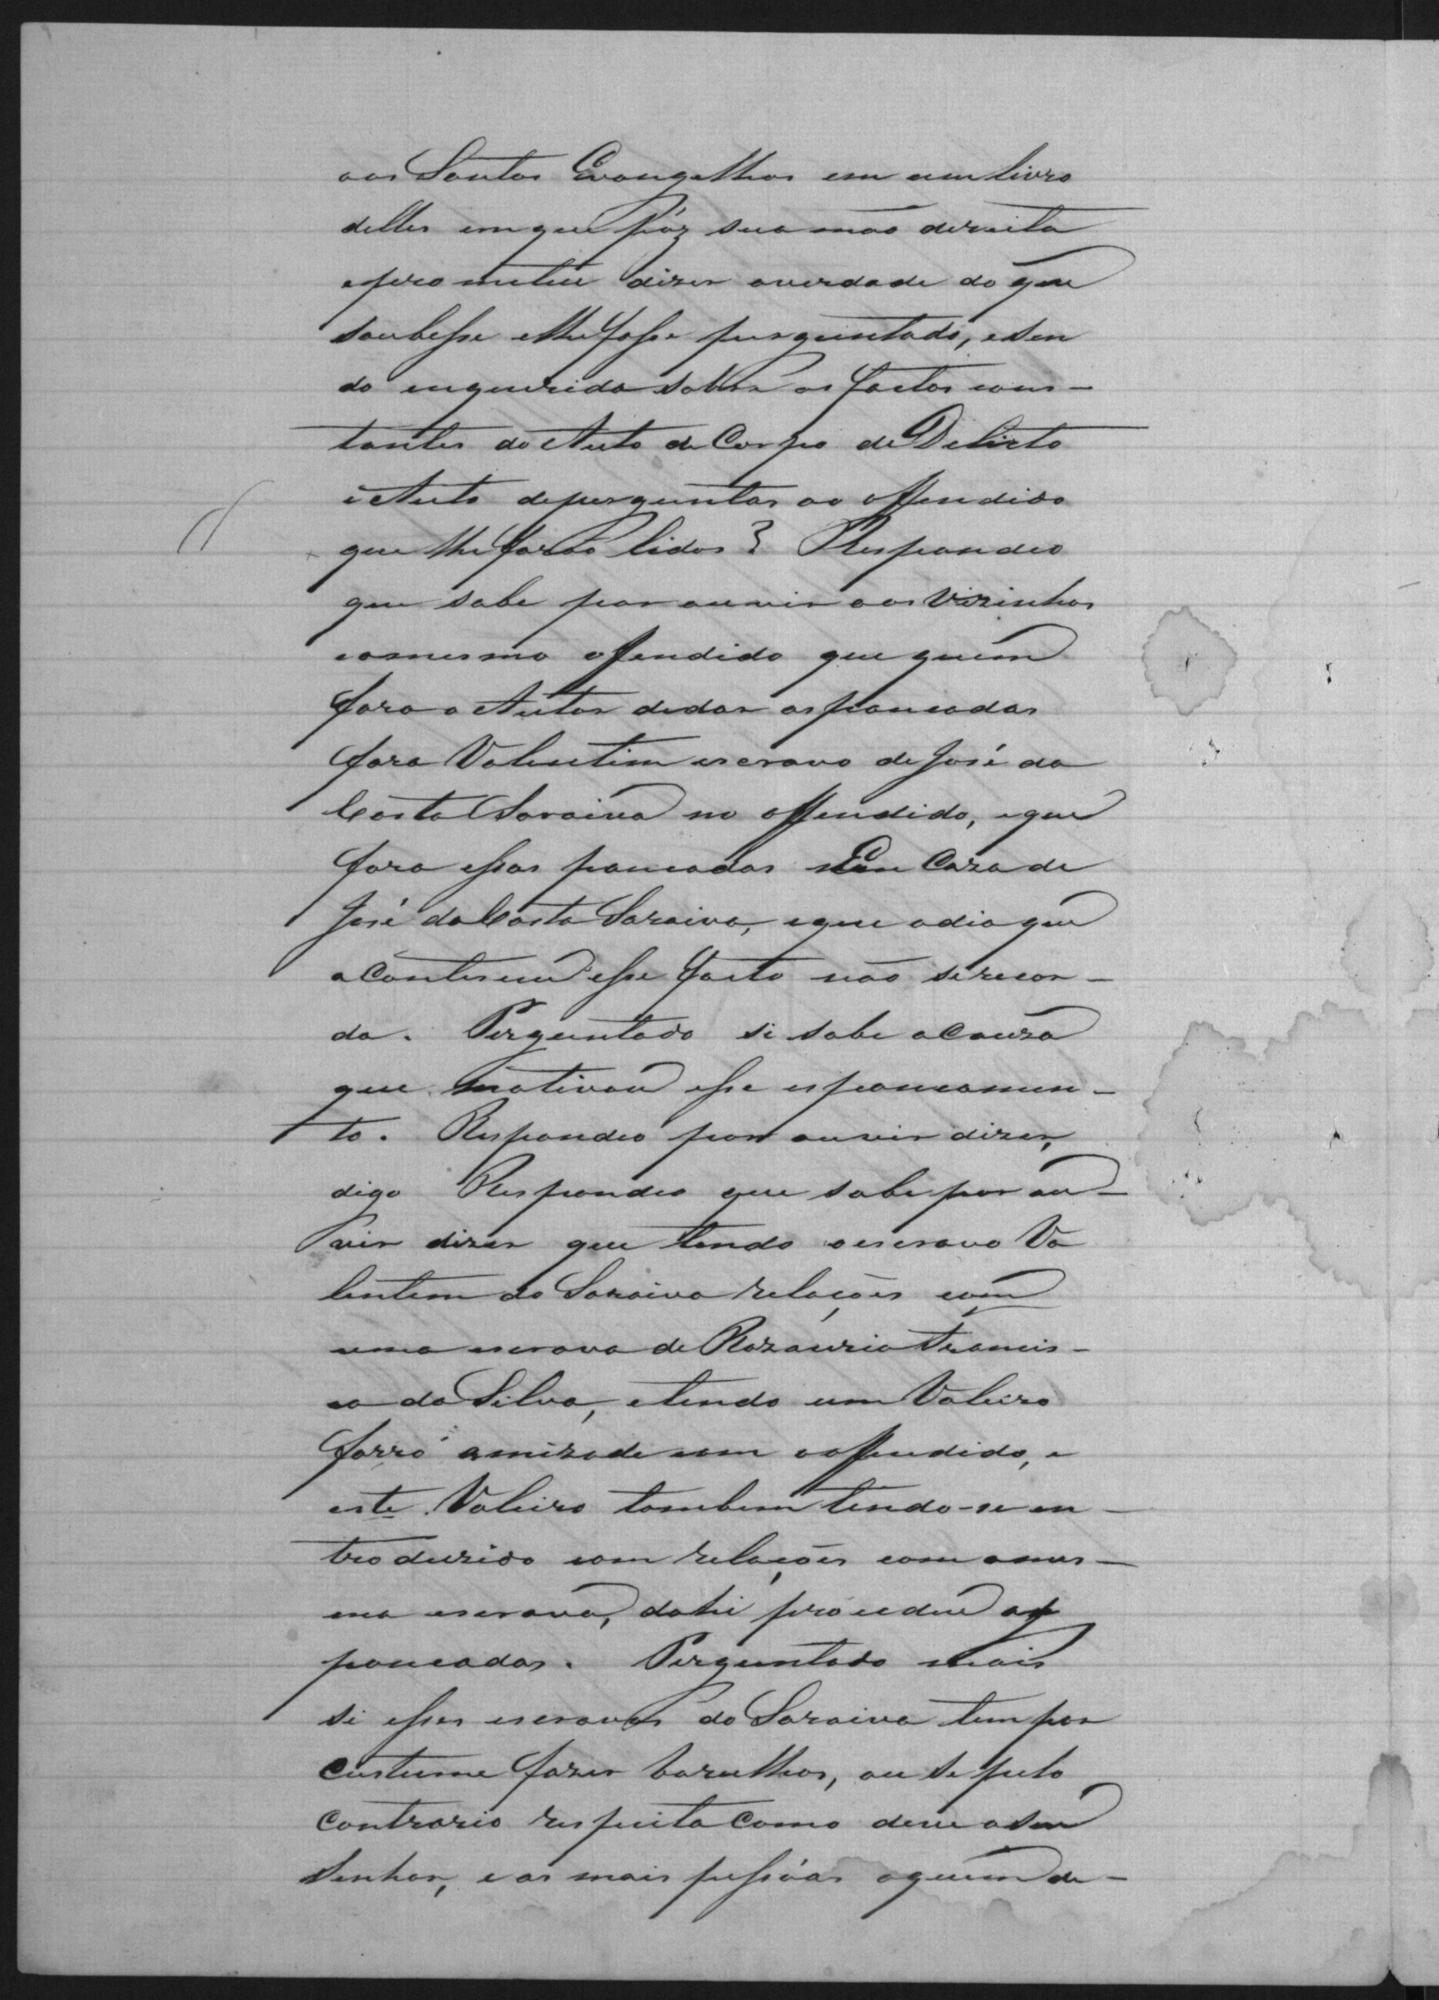 aos Santos Evangelhos em um livro
delles em que pôz sua mão dereita
e prometeu dizer averdade do que
soubesse e lhe fosse perguntado, e sen
do enquerido sobre os factos cons-
tantes do Auto de Corpo de Delicto
e Auto de perguntas ao offendido
que lhe forão lidos? Respondeo
que sabe por ouvir aos Vizinhos
e o mesmo offendido que quem
fora o Autor de dar as pancadas
fora Valentim escravo de José da
Costa Saraiva no offendido, e que
fora essas pancadas em Caza de
José da Costa Saraiva, e que o dia que
aConteceu esse facto não se recor-
da. Perguntado si sabe a Cauza
que motivou esse espancamen-
to. Respondeo por ouvir dizer,
digo Respondeo que sabe por ou-
vir dizer que tendo o escravo Va
lentim do Saraiva relações com
uma escrava de Rozaurio Francis-
co da Silva, e tendo um Valerio
forro amizade com o offendido, e
este Valerio tambem tendo-se en-
troduzido com relações com a mes-
ma escrava, dahi procedeu as
pancadas. Perguntado mais
si esses escravos do Saraiva tem por
Custume fazer barulhos, ou se pelo
Contrario respeita Como deve a seu
Senhor, e as mais pessôas a quem de-